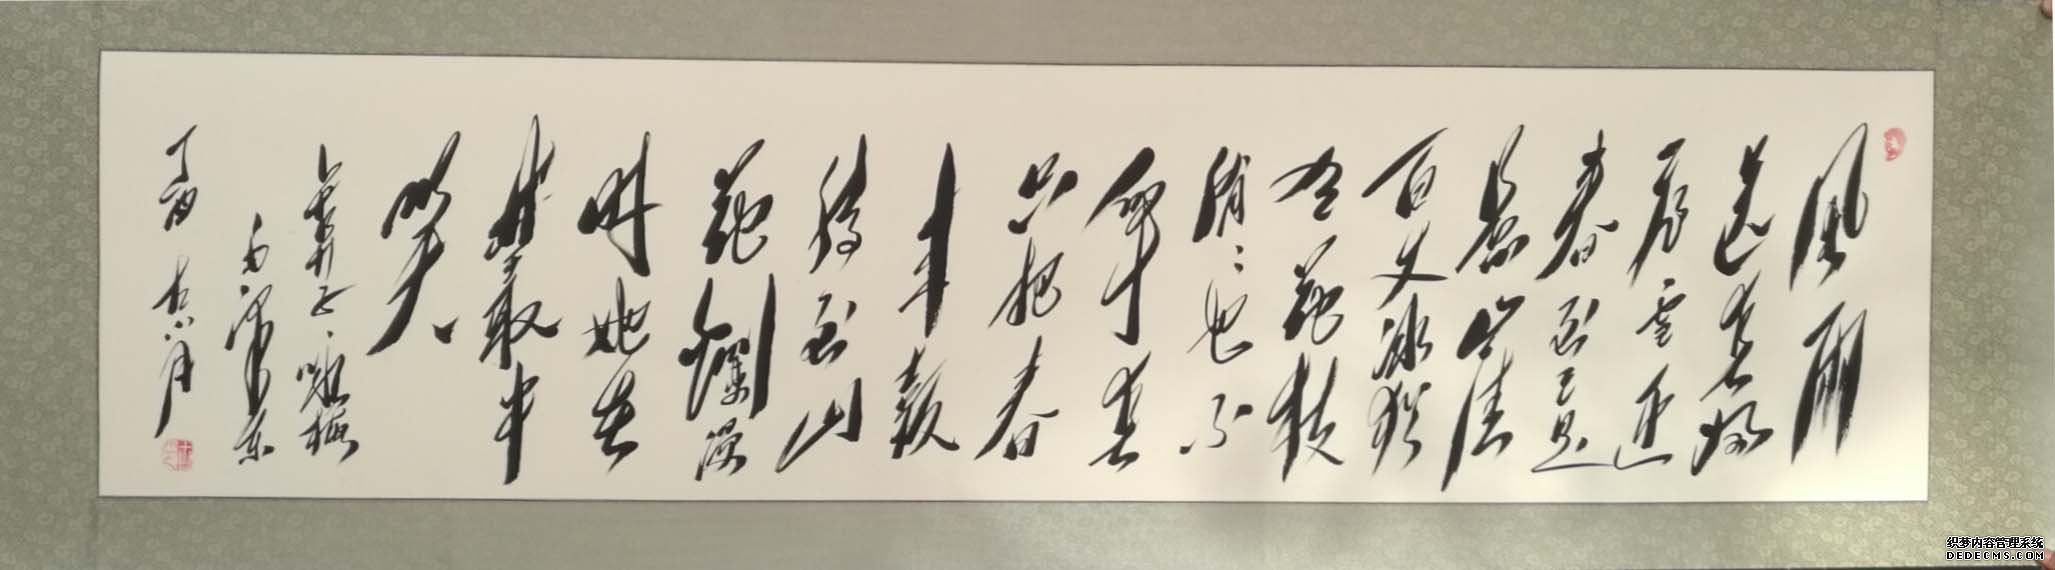 風雨
送春歸
飛雪迎
春到已是
懸崖
百丈冰猶
有花枝
俏〻也不
爭春
只把春
來報
待到山
花爛漫
時她在
叢中
笑
卜算子、咏梅
毛澤东
丁酉 月
织梦内容管理系统
DEDECMS.COM